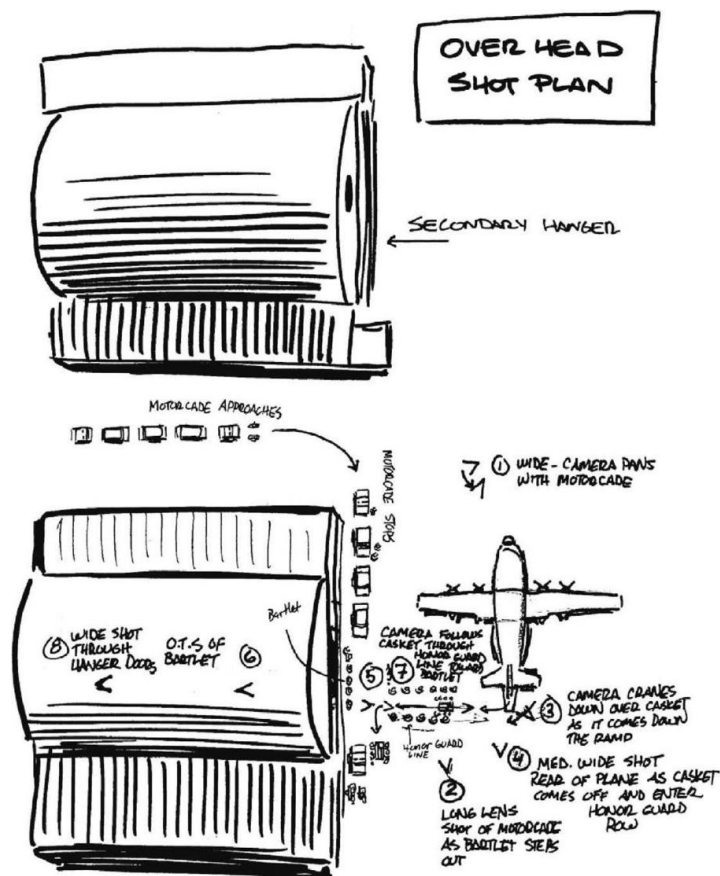 OVER HEAD
SHOT PLAN
SECONDARY HANGER
MOTORCADE APPROACHES
MOTORCADE STOPS
① WIDE - CAMERA PANS
WITH MOTORCADE
Bartlet
⑧ WIDE SHOT
THROUGH
HANGER DOORS
O.T.S OF
BARTLET
⑥
CAMERA FOLLOWS
CASKET THROUGH
HONOR GUARD
LINE TOWARDS
BARTLET
⑤ ⑦
HONOR GUARD
LINE
③ CAMERA CRANES
DOWN OVER CASKET
AS IT COMES DOWN
THE RAMP
④ MED. WIDE SHOT
REAR OF PLANE AS CASKET
COMES OFF AND ENTER
HONOR GUARD
ROW
②
LONG LENS
SHOT OF MOTORCADE
AS BARTLET STEPS
OUT